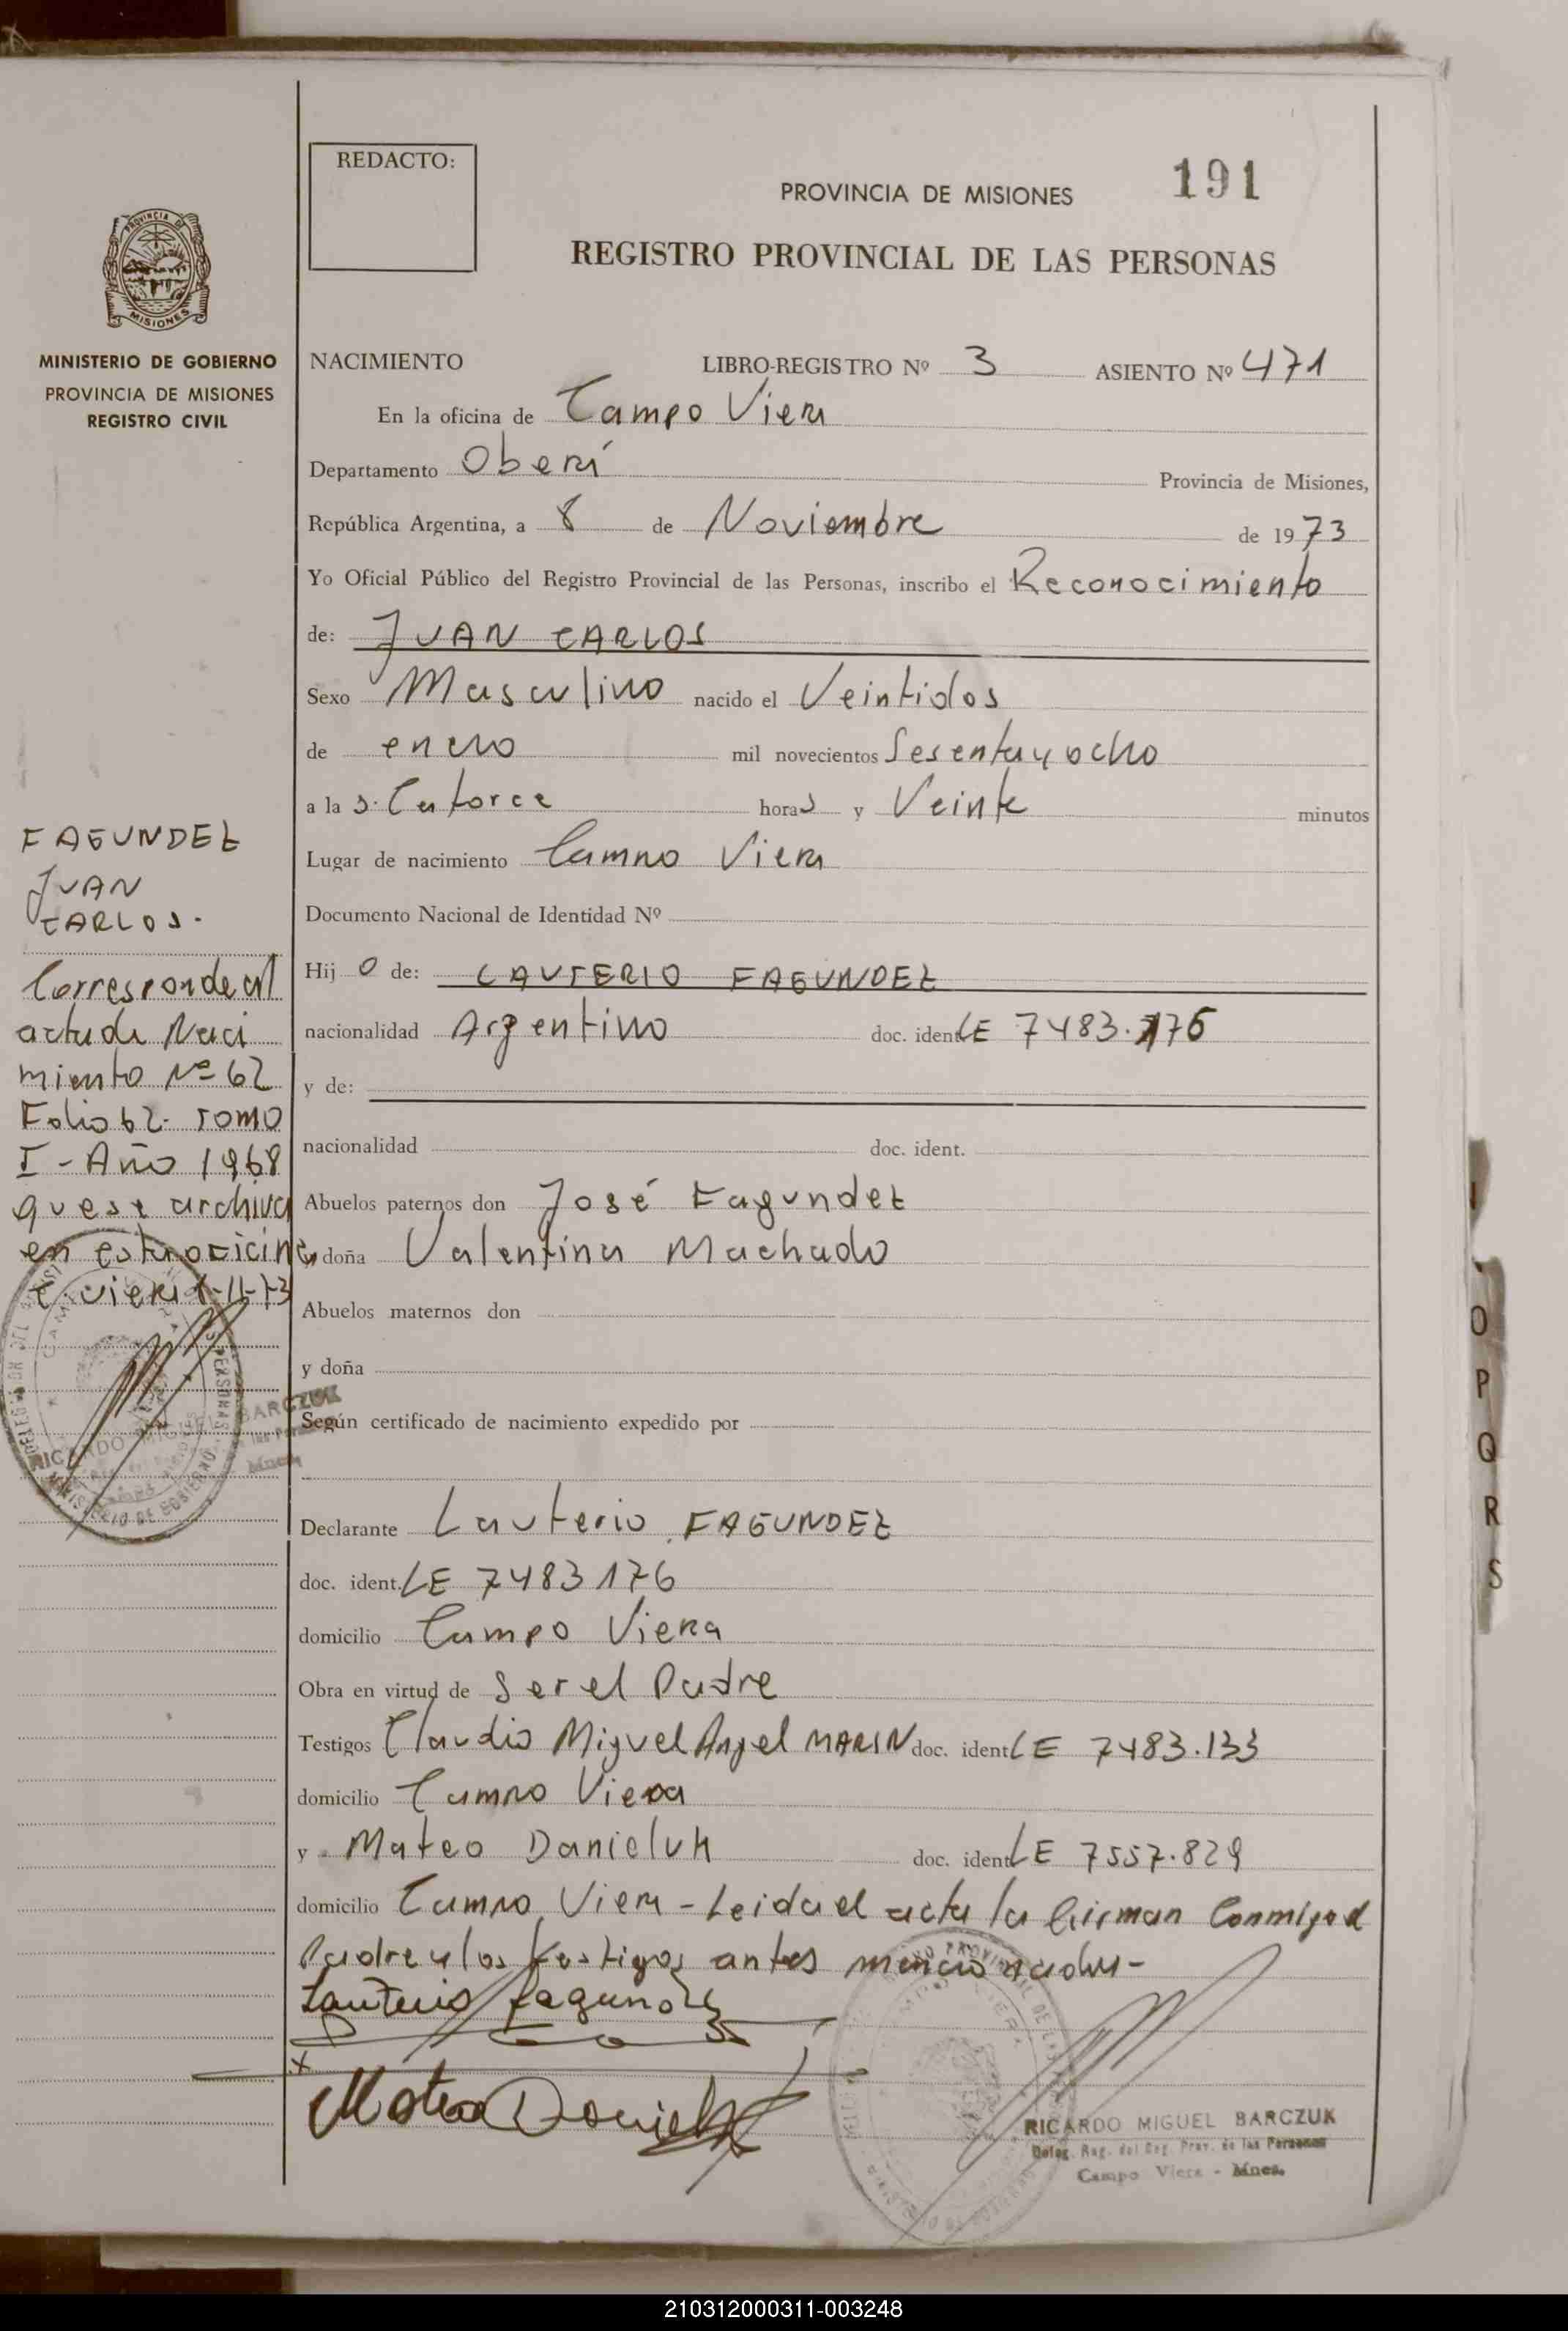 REDACTO:
PROVINCIA DE MISIONES
191
REGISTRO PROVINCIAL DE LAS PERSONAS
PROVINCIA DE
MISIONES
MINISTERIO DE GOBIERNO
PROVINCIA DE MISIONES
REGISTRO CIVIL
NACIMIENTO LIBRO-REGISTRO Nº 3 ASIENTO Nº 471
En la oficina de Campo Viera
Departamento Oberá Provincia de Misiones,
República Argentina, a 8 de Noviembre de 1973
Yo Oficial Público del Registro Provincial de las Personas, inscribo el Reconocimiento
de: JUAN CARLOS
Sexo Masculino nacido el Veintidos
de enero mil novecientos Sesenta y ocho
a la s. Catorce horas y Veinte minutos
Lugar de nacimiento Campo Viera
Documento Nacional de Identidad Nº
Hij o de: LAUTERIO FAGUNDEZ
nacionalidad Argentino doc. ident. LE 7483.176
y de:
nacionalidad doc. ident.
Abuelos paternos don José Fagundez
y doña Valentina Machado
Abuelos maternos don
y doña
Según certificado de nacimiento expedido por
Declarante Lauterio FAGUNDEZ
doc. ident. LE 7483176
domicilio Campo Viera
Obra en virtud de Ser el Padre
Testigos Claudio Miguel Angel MARIN doc. ident. LE 7483.133
domicilio Campo Viera
y Mateo Danieluk doc. ident. LE 7557.829
domicilio Campo Viera - Leida el acta la firman Conmigo el
Padre y los testigos antes mencionados-
Lauterio Fagundez
x
Mateo Daniel
RICARDO MIGUEL BARCZUK
Deleg. Reg. del Reg. Prov. de las Personas
Campo Viera - Mnes.
FAGUNDEZ
JUAN
CARLOS.
Corresponde al
acta de Naci
miento Nº 62
Folio 62. TOMO
I - Año 1968
que se archiva
en esta oficina
C. Viera 8-11-73
RICARDO MIGUEL BARCZUK
MINISTERIO DE GOBIERNO
O
P
Q
R
S
210312000311-003248